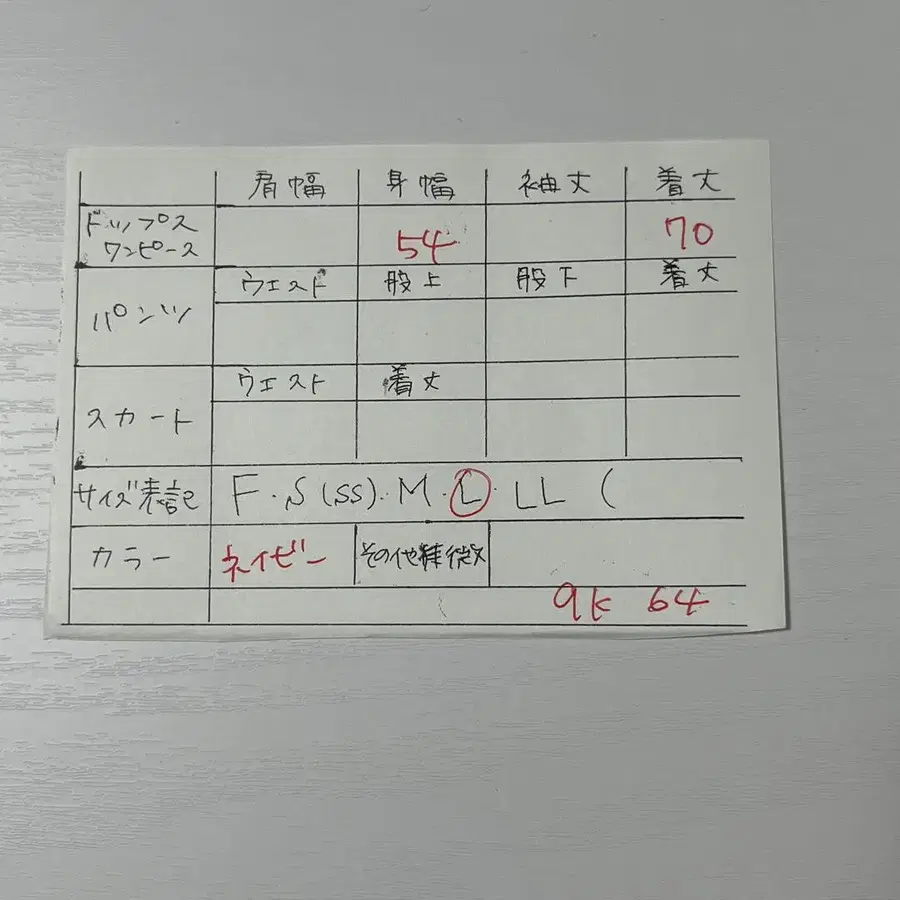 肩幅 身幅 袖丈 着丈
トップス
ワンピース 54 70
ウエスト 股上 股下 着丈
パンツ
ウエスト 着丈
スカート
サイズ表記 F・S(SS)・M・L・LL (
カラー ネイビー その他特徴
9k 64